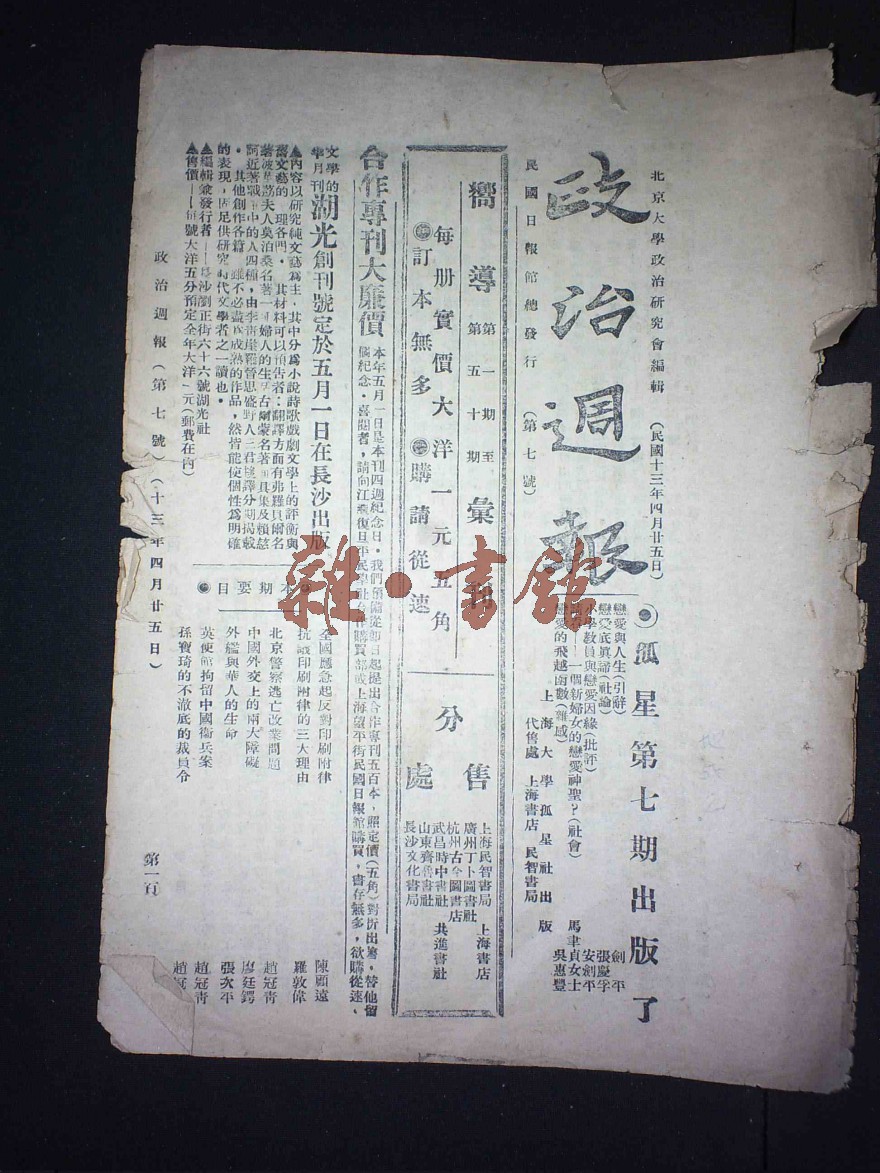 北京大學政治研究會編輯 (民國十三年四月廿五日)
政治週報
民國日報館總發行 (第七號)
●孤星第七期出版了
戀愛與人生(引辭) 劍平
戀愛底真諦(社論) 張慶孚
小學教員與戀愛因緣(批評) 安劍平
一個新婦女的戀愛神聖?(社會) 馬聿貞女士
戀愛的飛越函數(雜感) 吳惠豐
上海大學孤星社出版
代售處 上海書店 民智書局
嚮導 第一期至第五十期 彙刊
每册實價大洋一元五角
●訂本無多●購請從速
分售處
上海民智書局 上海書店
廣州丁卜圖書社
杭州古今圖書店
武昌時中書社 共進書社
山東齊魯書社
長沙文化書局
合作專刊大廉價
本年五月一日是本刊四週紀念日・我們預備從即日起提出合作專刊五百本,照定價(五角)對折出售,替他留
個紀念・喜閱者,請向江灣復旦平民學社合作購買部或上海望平街民國日報館購買,書存無多,欲購從速、
文學的半月刊 湖光創刊號定於五月一日在長沙出版
▲內容以研究純文藝爲主,其中分爲小說詩歌戲劇文學上的評衡與
舊文藝的 理各門・其材料可以預告者:翻譯方面有弗羅貝爾名
著波華荔夫人莫泊桑名著一個婦人的生 古爾蒙名著 具集及賴慈
珂近著戰 中的人四種,由李 崖羅晉思盛野人三君 譯分期揭載
・其他創作各篇 雖不必盡 成熟的作品,然皆能使個性爲明確
的表現,因足供研究時代文學者之一讀也・
▲編輯兼發行者——長沙劉正街六十六號湖光社
▲售價——每號大洋五分預定全年大洋一元(郵費在內)
●本期要目●
全國應急起反對印刷附律 陳顧遠
抗議印刷附律的三大理由 羅敦偉
北京警察逃亡改業問題 趙冠青
中國外交上的兩大障礙 廖廷鍔
外艦與華人的生命 張次平
英使館拘留中國衛兵案 趙冠青
孫寶琦的不澈底的裁員令 趙冠
政治週報(第七號)(十三年四月廿五日) 第一頁
雜・書館